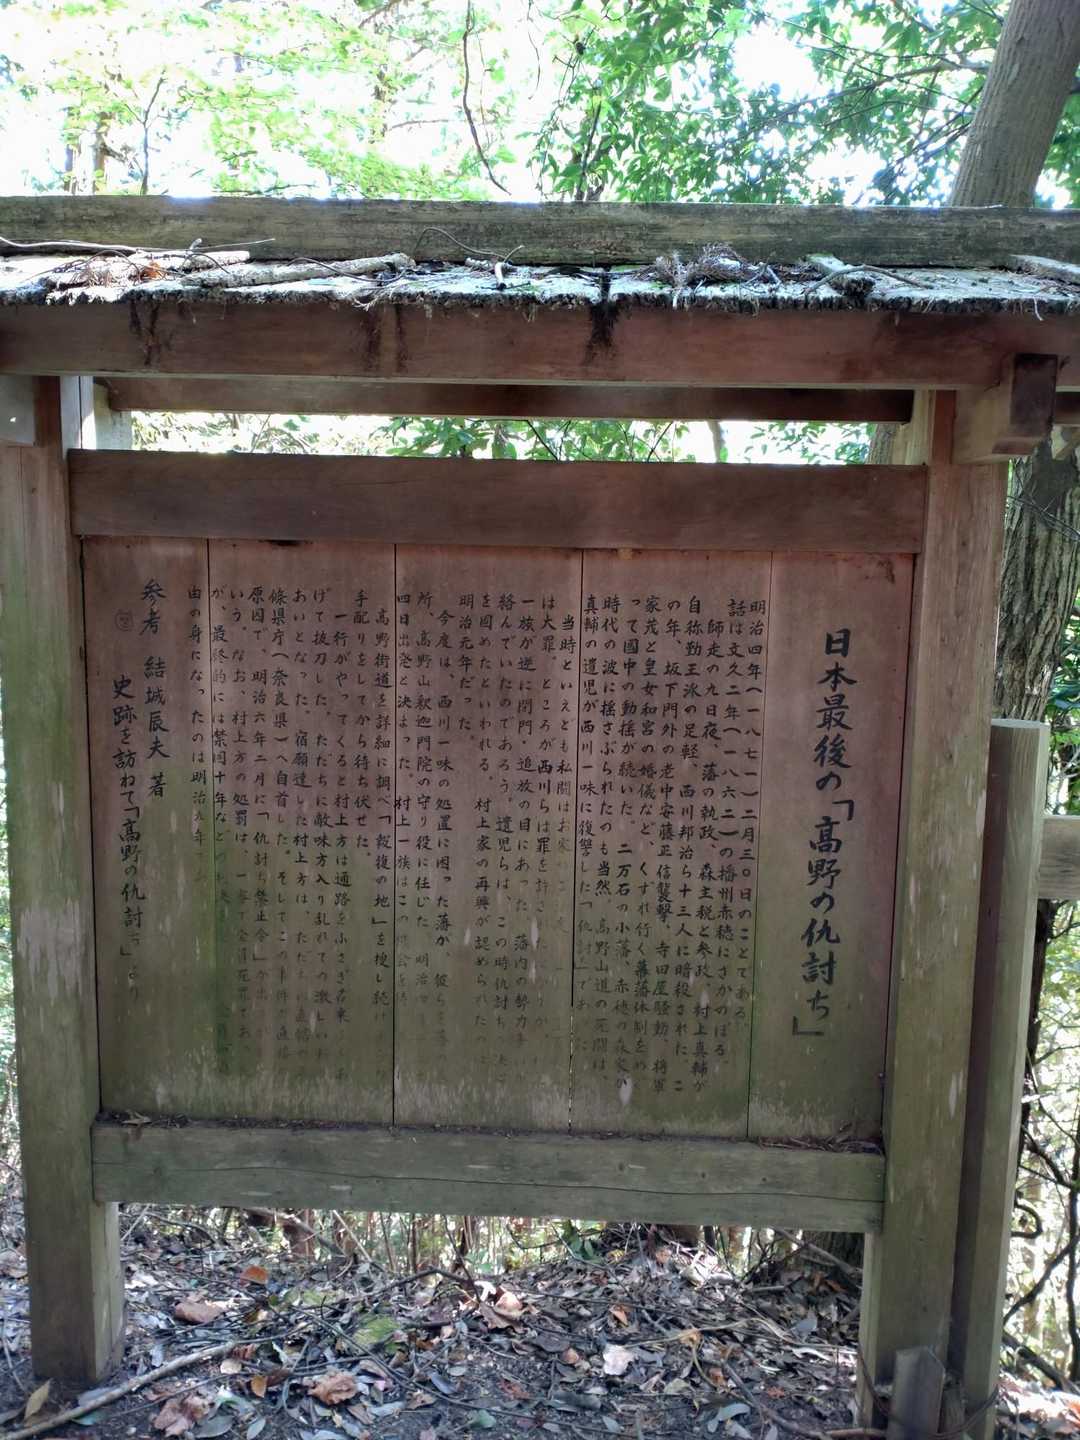 日本最後の「高野の仇討ち」
明治四年(一八七一)二月三〇日のことである。
話は文久二年(一八六二)の播州赤穂にさかのぼる。
師走の九日夜、藩の執政、森主税と参政、村上真輔が
自称勤王派の足軽、西川邦治ら十三人に暗殺された。こ
の年、坂下門外の老中安藤正信襲撃、寺田屋騒動、将軍
家茂と皇女和宮の婚儀など、くずれ行く幕藩体制をめぐ
って國中の動揺が続いた。二万石の小藩、赤穂の森家が
時代の波に揺さぶられたのも当然。高野山道の死闘は、
真輔の遺児が西川一味に復讐した「仇討ち」であった。
当時といえども私闘はお家
は大罪。ところが西川らは罪を許さ
一族が逆に閉門・追放の目にあった。藩内の勢力争い
絡んでいたのであろう。遺児らは、この時仇討ち
を固めたといわれる。村上家の再興が認められたのは
明治元年だった。
今度は、西川一味の処置に困った藩が、彼らを
所、高野山釈迦門院の守り役に任じた。明治
四日出発と決まった。村上一族はこの機会を
高野街道を詳細に調べ「殺復の地」を捜し続け
手配りをしてから待ち伏せた。
一行がやってくると村上方は通路をふさぎ名乗
げて抜刀した。ただちに敵味方入り乱れての激しい
おいとなった。宿願達した村上方は、ただちに直轄の
條県庁(奈良県)へ自首した。そしてこの事件が直接
原因で、明治六年二月に「仇討ち禁止令」が出
いう。なお、村上方の処罰は、一審で全員死罪であっ
が、最終的には禁固十年など
由の身になったのは明治九年で
参考 結城辰夫 著
史跡を訪ねて「高野の仇討ち」より